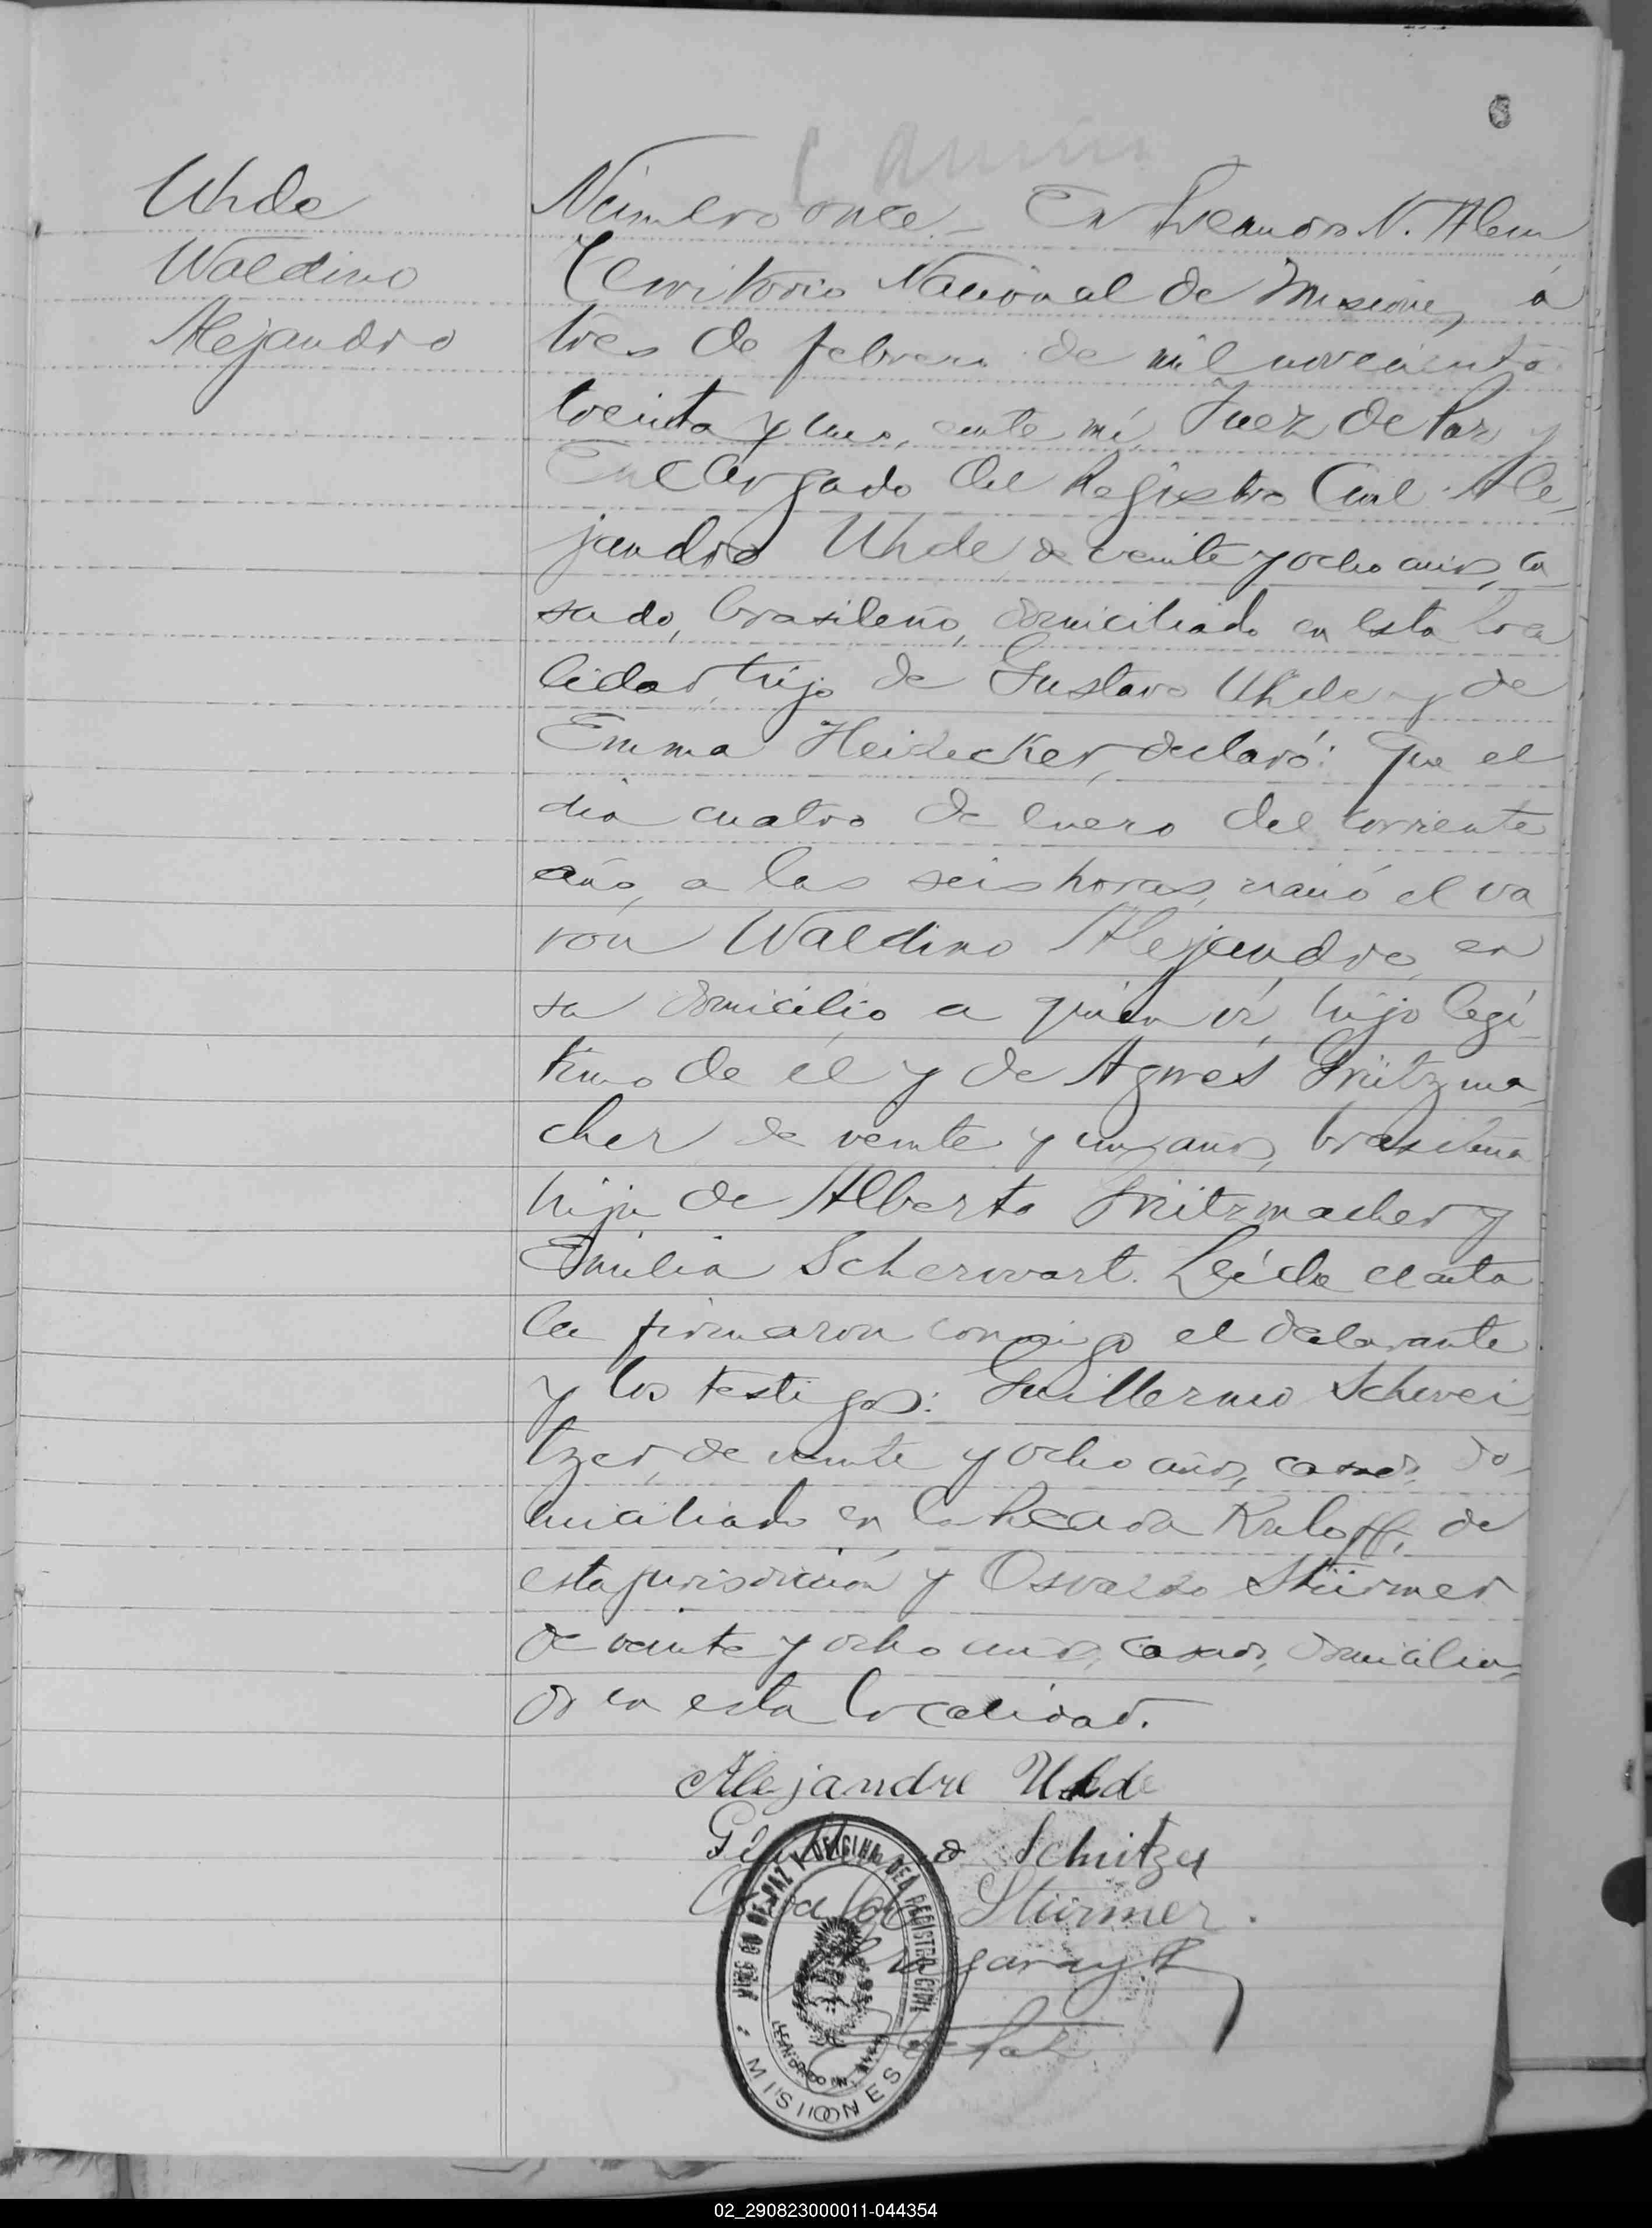 6
Uhde
Waldino
Alejandro
Número once.- En Leandro N. Alem
Territorio Nacional de Misiones, á
tres de febrero de mil novecientos
treinta y uno, ante mí, Juez de Paz y
Encargado del Registro Civil Ale-
jandro Uhde de veinte y ocho años, ca
sado, brasileño, domiciliado en esta loca
lidad, hijo de Gustavo Uhde y de
Emma Heidecker, declaró: Que el
día cuatro de enero del corriente
año, a las seis horas, nació el va
rón Waldino Alejandro, en
su domicilio a quien ví, hijo legí-
timo de él y de Agnes Grützma-
cher de veinte y un años, brasileña
hija de Alberto Grützmacher y
Emilia Scherwart. Leída el acta
la firmaron conmigo el declarante
y los testigos: Guillermo Schwei
tzer, de veinte y ocho años, casado, do-
miciliado en la Picada Kuloff, de
esta jurisdicción y Osvaldo Stürmer
de veinte y ocho años, casado, domicilia-
do en esta localidad.
Alejandre Uhde
Schuitzer
Osvaldo Stürmer.
JUZGADO DE PAZ Y OFICINA DEL REGISTRO CIVIL
LEANDRO N. ALEM
MISIONES
02_290823000011-044354